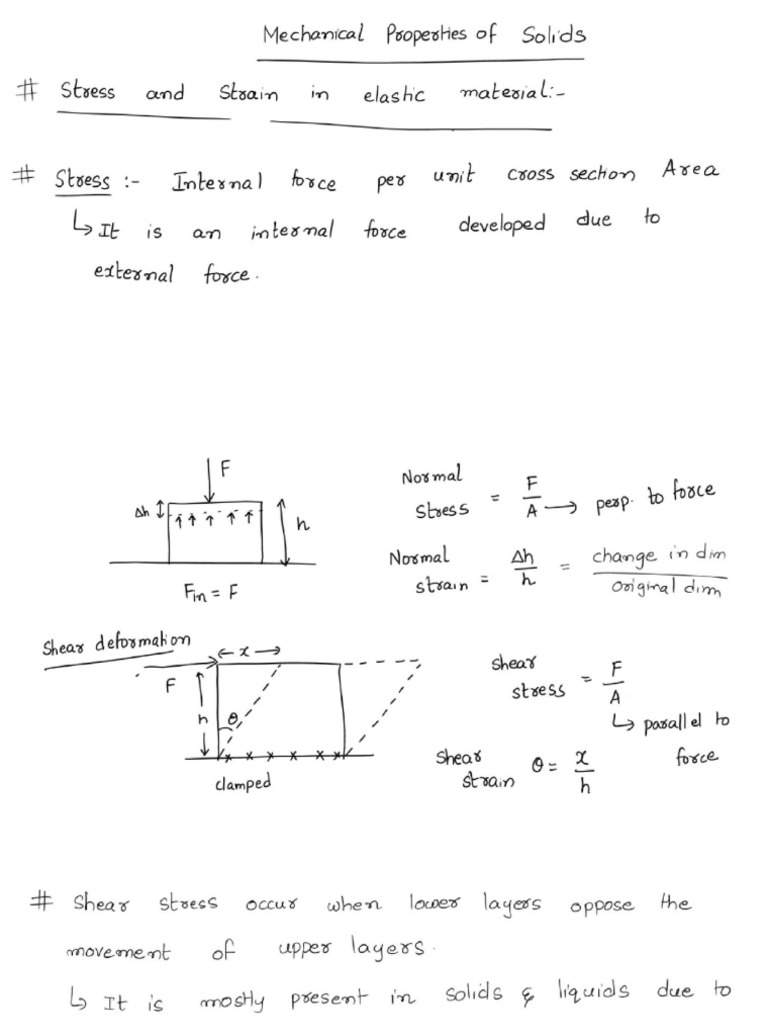 Mechanical Properties of Solids
# Stress and Strain in elastic material:-
# Stress :- Internal force per unit cross section Area
↳ It is an internal force developed due to
external force.
F
Δh
h
F_in = F
Normal stress = F/A → perp. to force
Normal strain = Δh/h = change in dim/original dim
Shear deformation
← x →
F
h
θ
clamped
Shear stress = F/A
↳ parallel to force
Shear strain θ = x/h
# Shear stress occur when lower layers oppose the
movement of upper layers.
↳ It is mostly present in solids & liquids due to